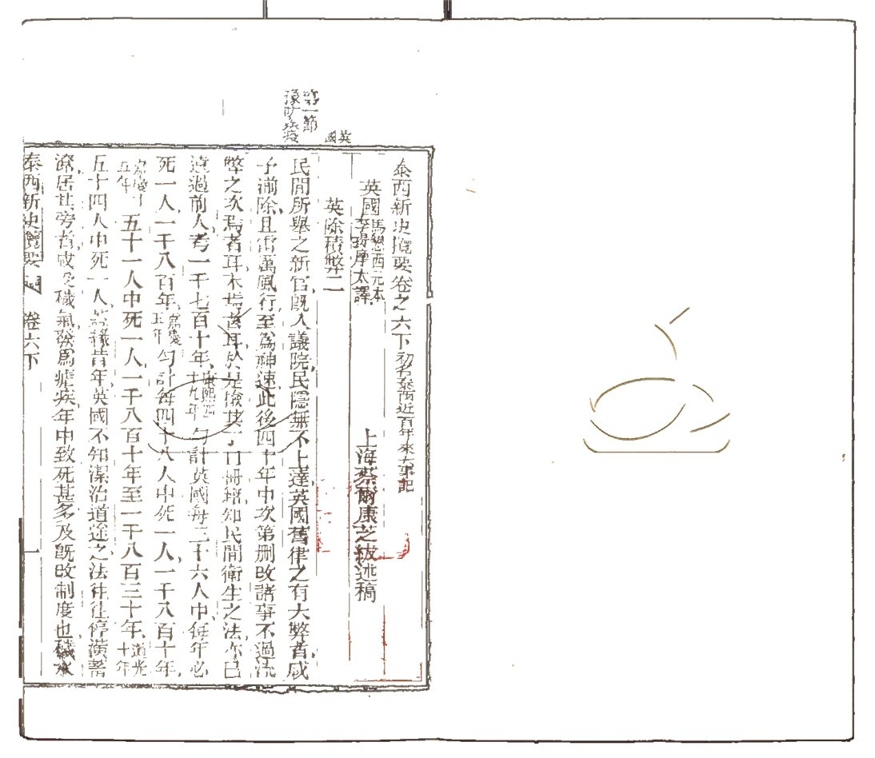 泰西新史攬要卷之六下 初名泰西近百年來大事記
英國 馬懇西元本
李提摩太譯
上海蔡爾康芝紱述稿
英除積弊二
英國
第一節
豫防疾疫
民間所舉之新官既入議院民隱無不上達英國舊律之有大弊者咸
予湔除且雷厲風行至為神速此後四十年中次第刪改諸事不過流
弊之次焉者耳末焉者耳於是攷其丁口冊籍知民間衛生之法亦已
遠過前人考一千七百十年康熙四十九年勻計英國每三十六人中每年必
死一人一千八百年嘉慶五年勻計每四十八人中死一人一千八百十年
嘉慶十五年五十一人中死一人一千八百十年至一千八百三十年道光十年
五十四人中死一人蓋緣昔年英國不知潔治道途之法往往停潢蓄
潦居其旁者或受穢氣發為瘧疾年中致死甚多及既改制度也穢水
泰西新史攬要 卷六下 一